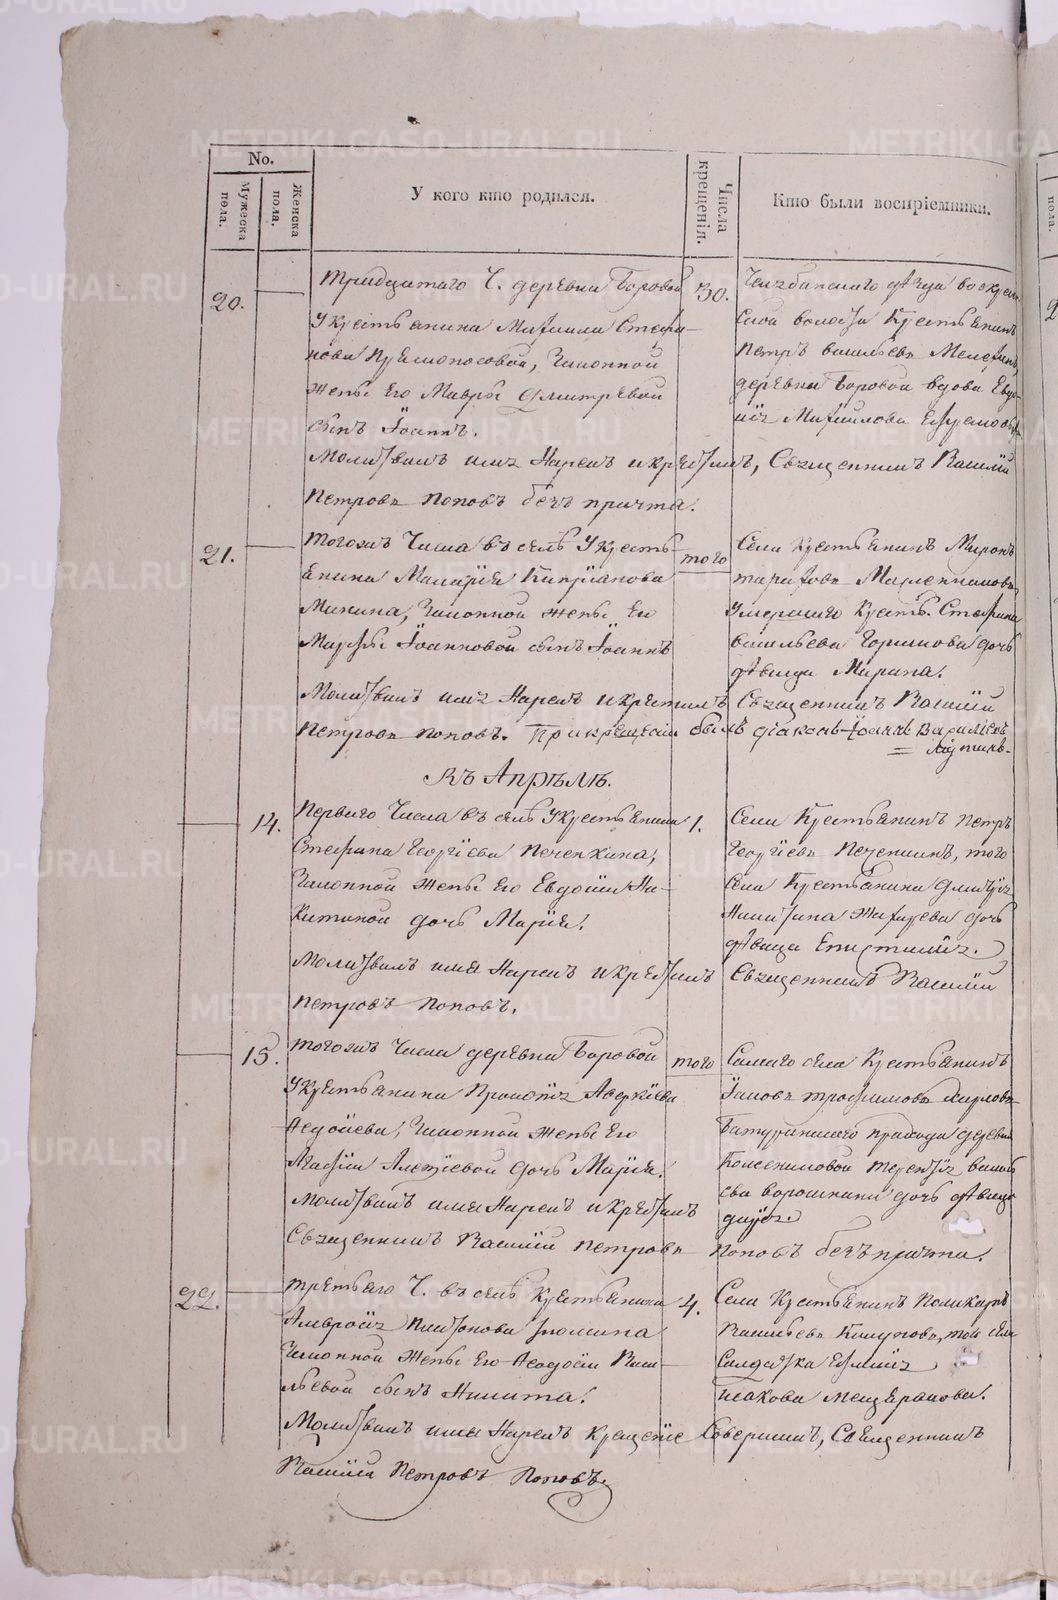 No.
Мужеска пола.
Женска пола.
У кого кто родился.
Числа крещенія.
Кто были воспріемники.
20.
тридцатаго Ч. деревни Боровой
У крестьянина Михаила Стефа-
нова, Законной
жены Его Мавры Дмитревой
сынъ Іоаннъ.
30.
Челябинскаго уѣзда воскресен
ской волости Крестьянинъ
Петръ васильевъ
деревни Боровой вдова Евдо-
кія Михайлова
Молитвилъ имя Нарекъ и крестилъ, Священникъ Василій
Петровъ Поповъ безъ причта.
21.
тогожъ Числа въ селѣ У кресть-
янина Макарія Кипріанова
Минина, Законной жены Его
Марѳы Іоанновой сынъ Іоаннъ
того
Села крестьянинъ Миронъ
Умершаго Крест. Стефана
васильева дочь
дѣвица Марина.
Молитвилъ имя Нарекъ и крестилъ Священникъ Василій
Петровъ Поповъ. При крещеніи былъ діаконъ Іоаннъ
въ Апрѣлѣ.
14.
Перваго Числа въ селѣ У крестьянина
Стефана Георгіева Печенкина,
Законной жены Его Евдокіи Ни-
китиной дочь Марія.
1.
Села Крестьянинъ Петръ
Георгіевъ Печенкинъ, того
Села Крестьянина Дмитрія
Никитина дочь
дѣвица Епистимія.
Молитвилъ имя Нарекъ и крестилъ Священникъ Василій
Петровъ Поповъ.
15.
тогожъ Числа деревни Боровой
У крестьянина Прокопія Аверкіева
Авдѣева, Законной жены Его
Агафіи Алексіевой дочь Марія.
того
Самаго села Крестьянинъ
Іаковъ трофимовъ
Батуринскаго прихода деревни
терентія василь
ева ворошнина дочь дѣвица
дарія.
Молитвилъ имя Нарекъ и крестилъ
Священникъ Василій Петровъ Поповъ безъ причта.
22.
третьяго Ч. въ селѣ Крестьянина
Амвросія Платонова
Законной жены Его Ѳеодосіи Васи-
льевой сынъ Никита.
4.
Села Крестьянинъ Поликарпъ
Васильевъ, того села
Салдатка Евфимія
Исакова Мещерякова.
Молитвилъ имя Нарекъ Крещеніе Совершилъ, Священникъ
Василій Петровъ Поповъ.
METRIKI.GASO-URAL.RU